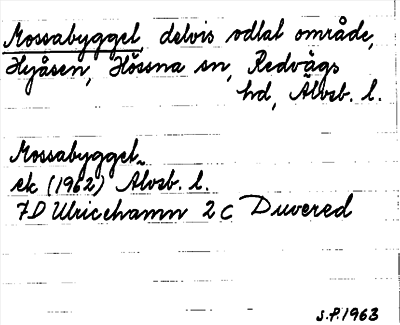 Mossabygget, delvis odlat område,
Hyåsen, Hössna sn, Redvägs
hd, Älvsb. l.
Mossabygget
ek (1962) Älvsb. l.
7D Ulricehamn 2c Duvered
S.F. 1963